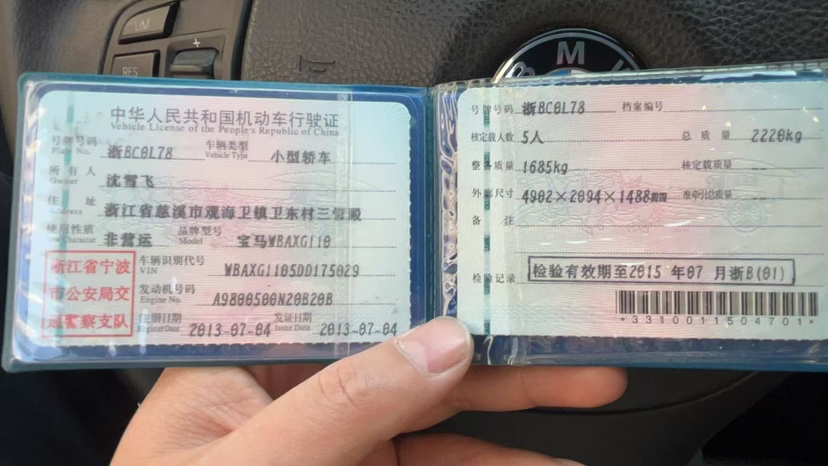 M
RES
中华人民共和国机动车行驶证
Vehicle License of the People's Republic of China
号牌号码 浙BC0L78 车辆类型 小型轿车
Plate No. Vehicle Type
所有人 沈雪飞
Owner
住址 浙江省慈溪市观海卫镇卫东村三管殿
Address
使用性质 非营运 品牌型号 宝马WBAXG110
Use Character Model
浙江省宁波
市公安局交
通警察支队
车辆识别代号 WBAXG1105DD175029
VIN
发动机号码 A9800500N20B20B
Engine No.
注册日期 2013-07-04 发证日期 2013-07-04
Register Date Issue Date
号牌号码 浙BC0L78 档案编号
核定载人数 5人 总质量 2220kg
整备质量 1685kg 核定载质量 --
外廓尺寸 4902×2094×1488mm 准牵引总质量 --
备注
检验记录 检验有效期至2015 年07 月浙B(01)
*3310011504701*